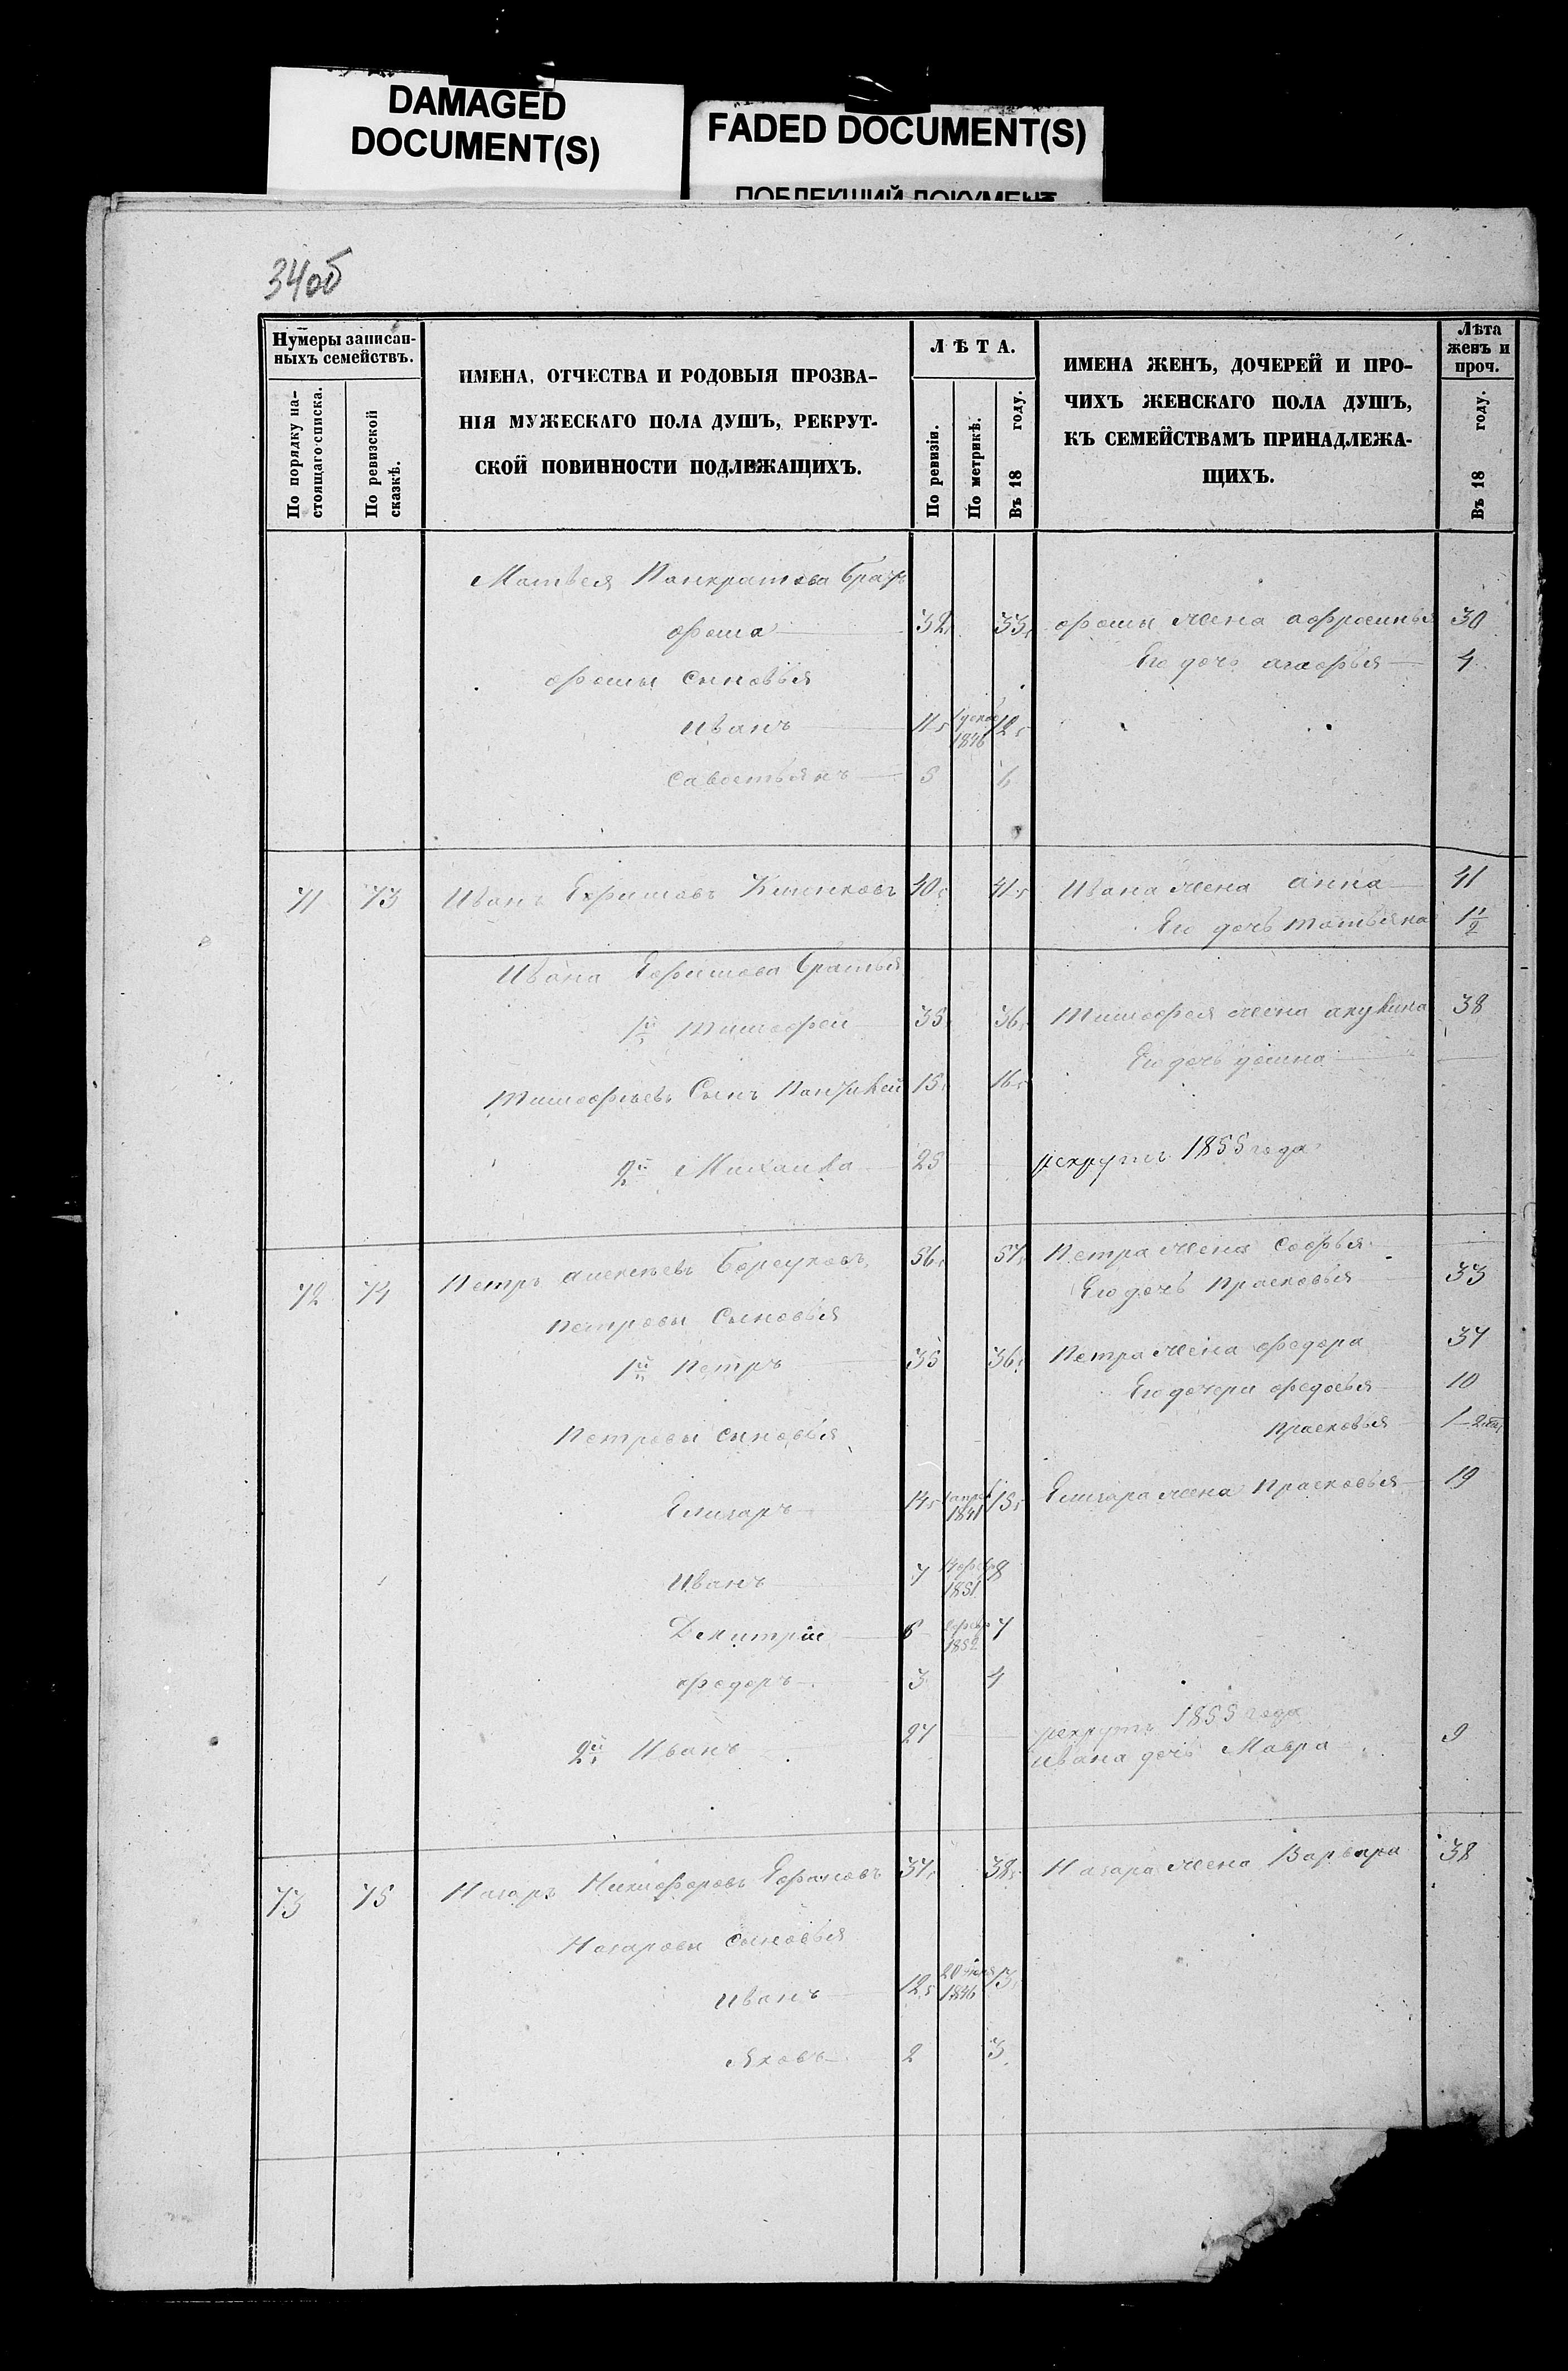 DAMAGED
DOCUMENT(S)
FADED DOCUMENT(S)
ПОБЛЕКШИЙ ДОКУМЕНТ
34об
Нумеры записан-
ныхъ семействъ.
По порядку на-
стоящаго списка.
По ревизской
сказкѣ.
ИМЕНА, ОТЧЕСТВА И РОДОВЫЯ ПРОЗВА-
НІЯ МУЖЕСКАГО ПОЛА ДУШЪ, РЕКРУТ-
СКОЙ ПОВИННОСТИ ПОДЛЕЖАЩИХЪ.
ЛѢТА.
По ревизіи.
По метрикѣ.
Въ 18 году.
ИМЕНА ЖЕНЪ, ДОЧЕРЕЙ И ПРО-
ЧИХЪ ЖЕНСКАГО ПОЛА ДУШЪ,
КЪ СЕМЕЙСТВАМЪ ПРИНАДЛЕЖА-
ЩИХЪ.
Лѣта
женъ и
проч.
Въ 18 году.
Матвея Панкратова братъ
фома 32 33 фомы жена афросинья 30
Его дочь агафья 4
фомы сыновья
Иванъ 11 1846 12
савостьянъ 5 6
71 73 Иванъ Ефимовъ 40 41 Ивана жена анна 41
Его дочь татьяна 1 1/2
Ивана Ефимова братья
1й Тимофей 35 36 Тимофея жена акулина 38
Его дочь домна
Тимофеевъ сынъ Пантилей 15 16
2й Михаила 25 рекрутъ 1855 года
72 74 Петръ алексѣевъ 56 57 Петра жена софья
Его дочь Прасковья 33
Петровы сыновья
1й Петръ 35 36 Петра жена федора 37
Его дочери федосья 10
Петровы сыновья Прасковья 1
Елизаръ 14 1841 15 Елизара жена Прасковья 19
Иванъ 7 1851 8
Дмитрій 6 1852 7
федоръ 3 4
2й Иванъ 27 рекрутъ 1855 года
Ивана дочь Мавра 9
73 75 Назаръ Никифоровъ 37 38 Назара жена Варвара 38
Назаровы сыновья
Иванъ 12 1846 13
Яковъ 2 3